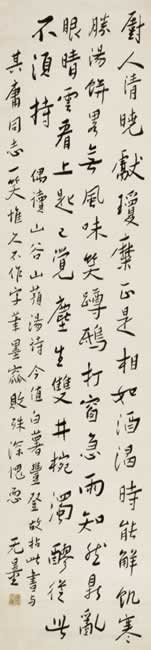 廚人清曉獻瓊糜正是相如酒渴時能解飢寒
勝湯餅畧無風味笑蹲鴟打窗急雨知然鼎亂
眼晴雲看上匙已覺塵生雙井椀濁醪從此
不須持
偶讀山谷山藷湯詩今值白薯豐登故拈此書与
其庸同志一笑惟久不作字筆墨敗殊深愧恧